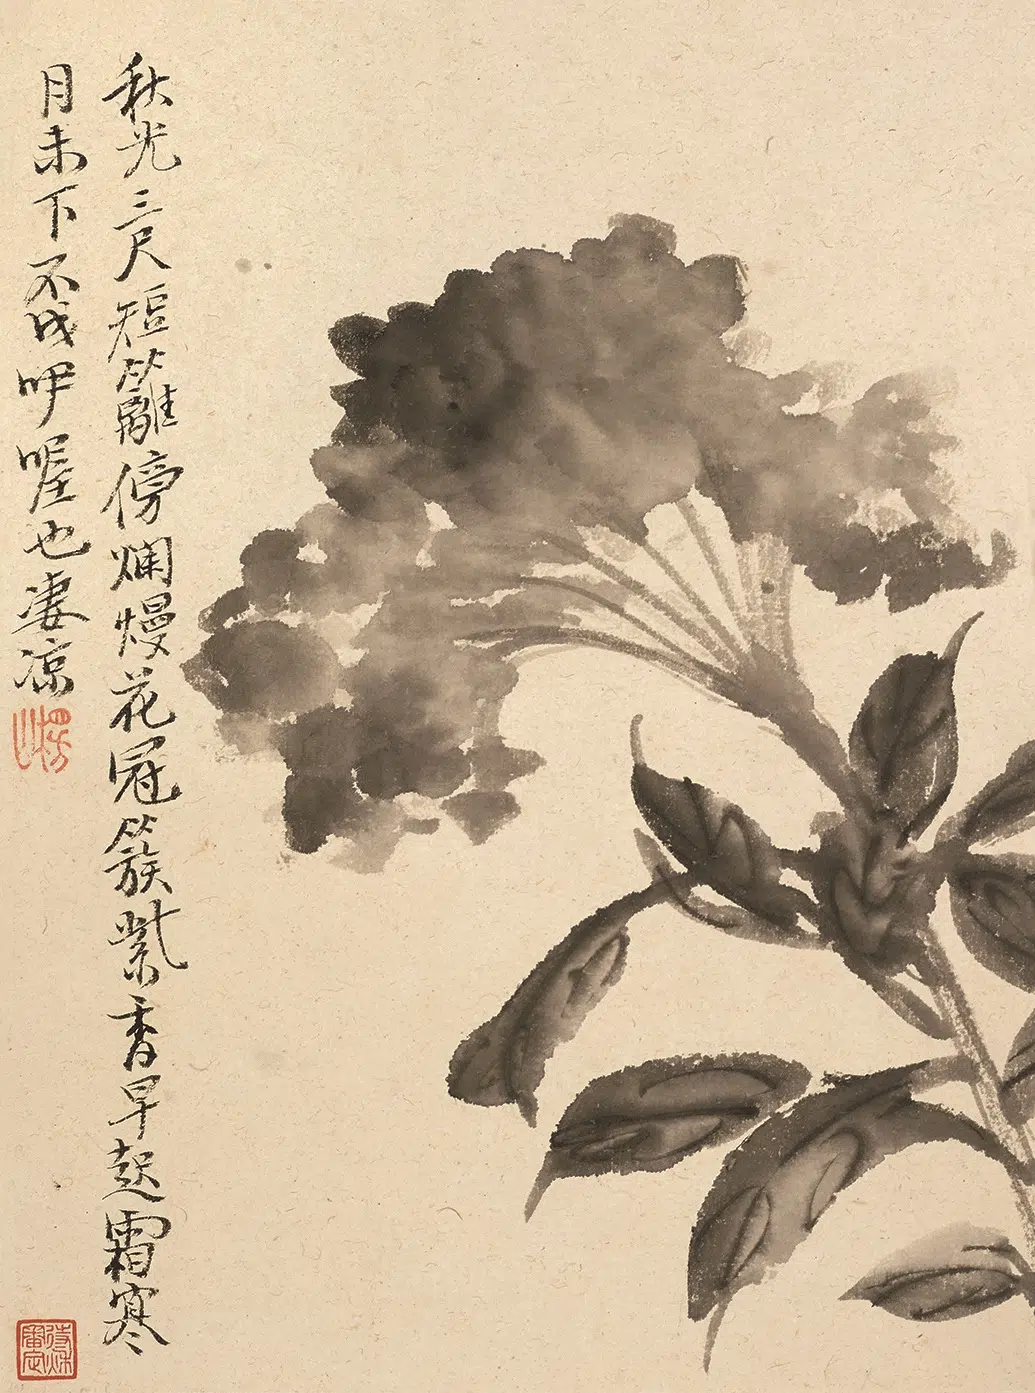 秋光三尺短籬傍爛熳花冠簇紫香早起霜寒
月未下不成咿喔也凄凉
待秋
審定